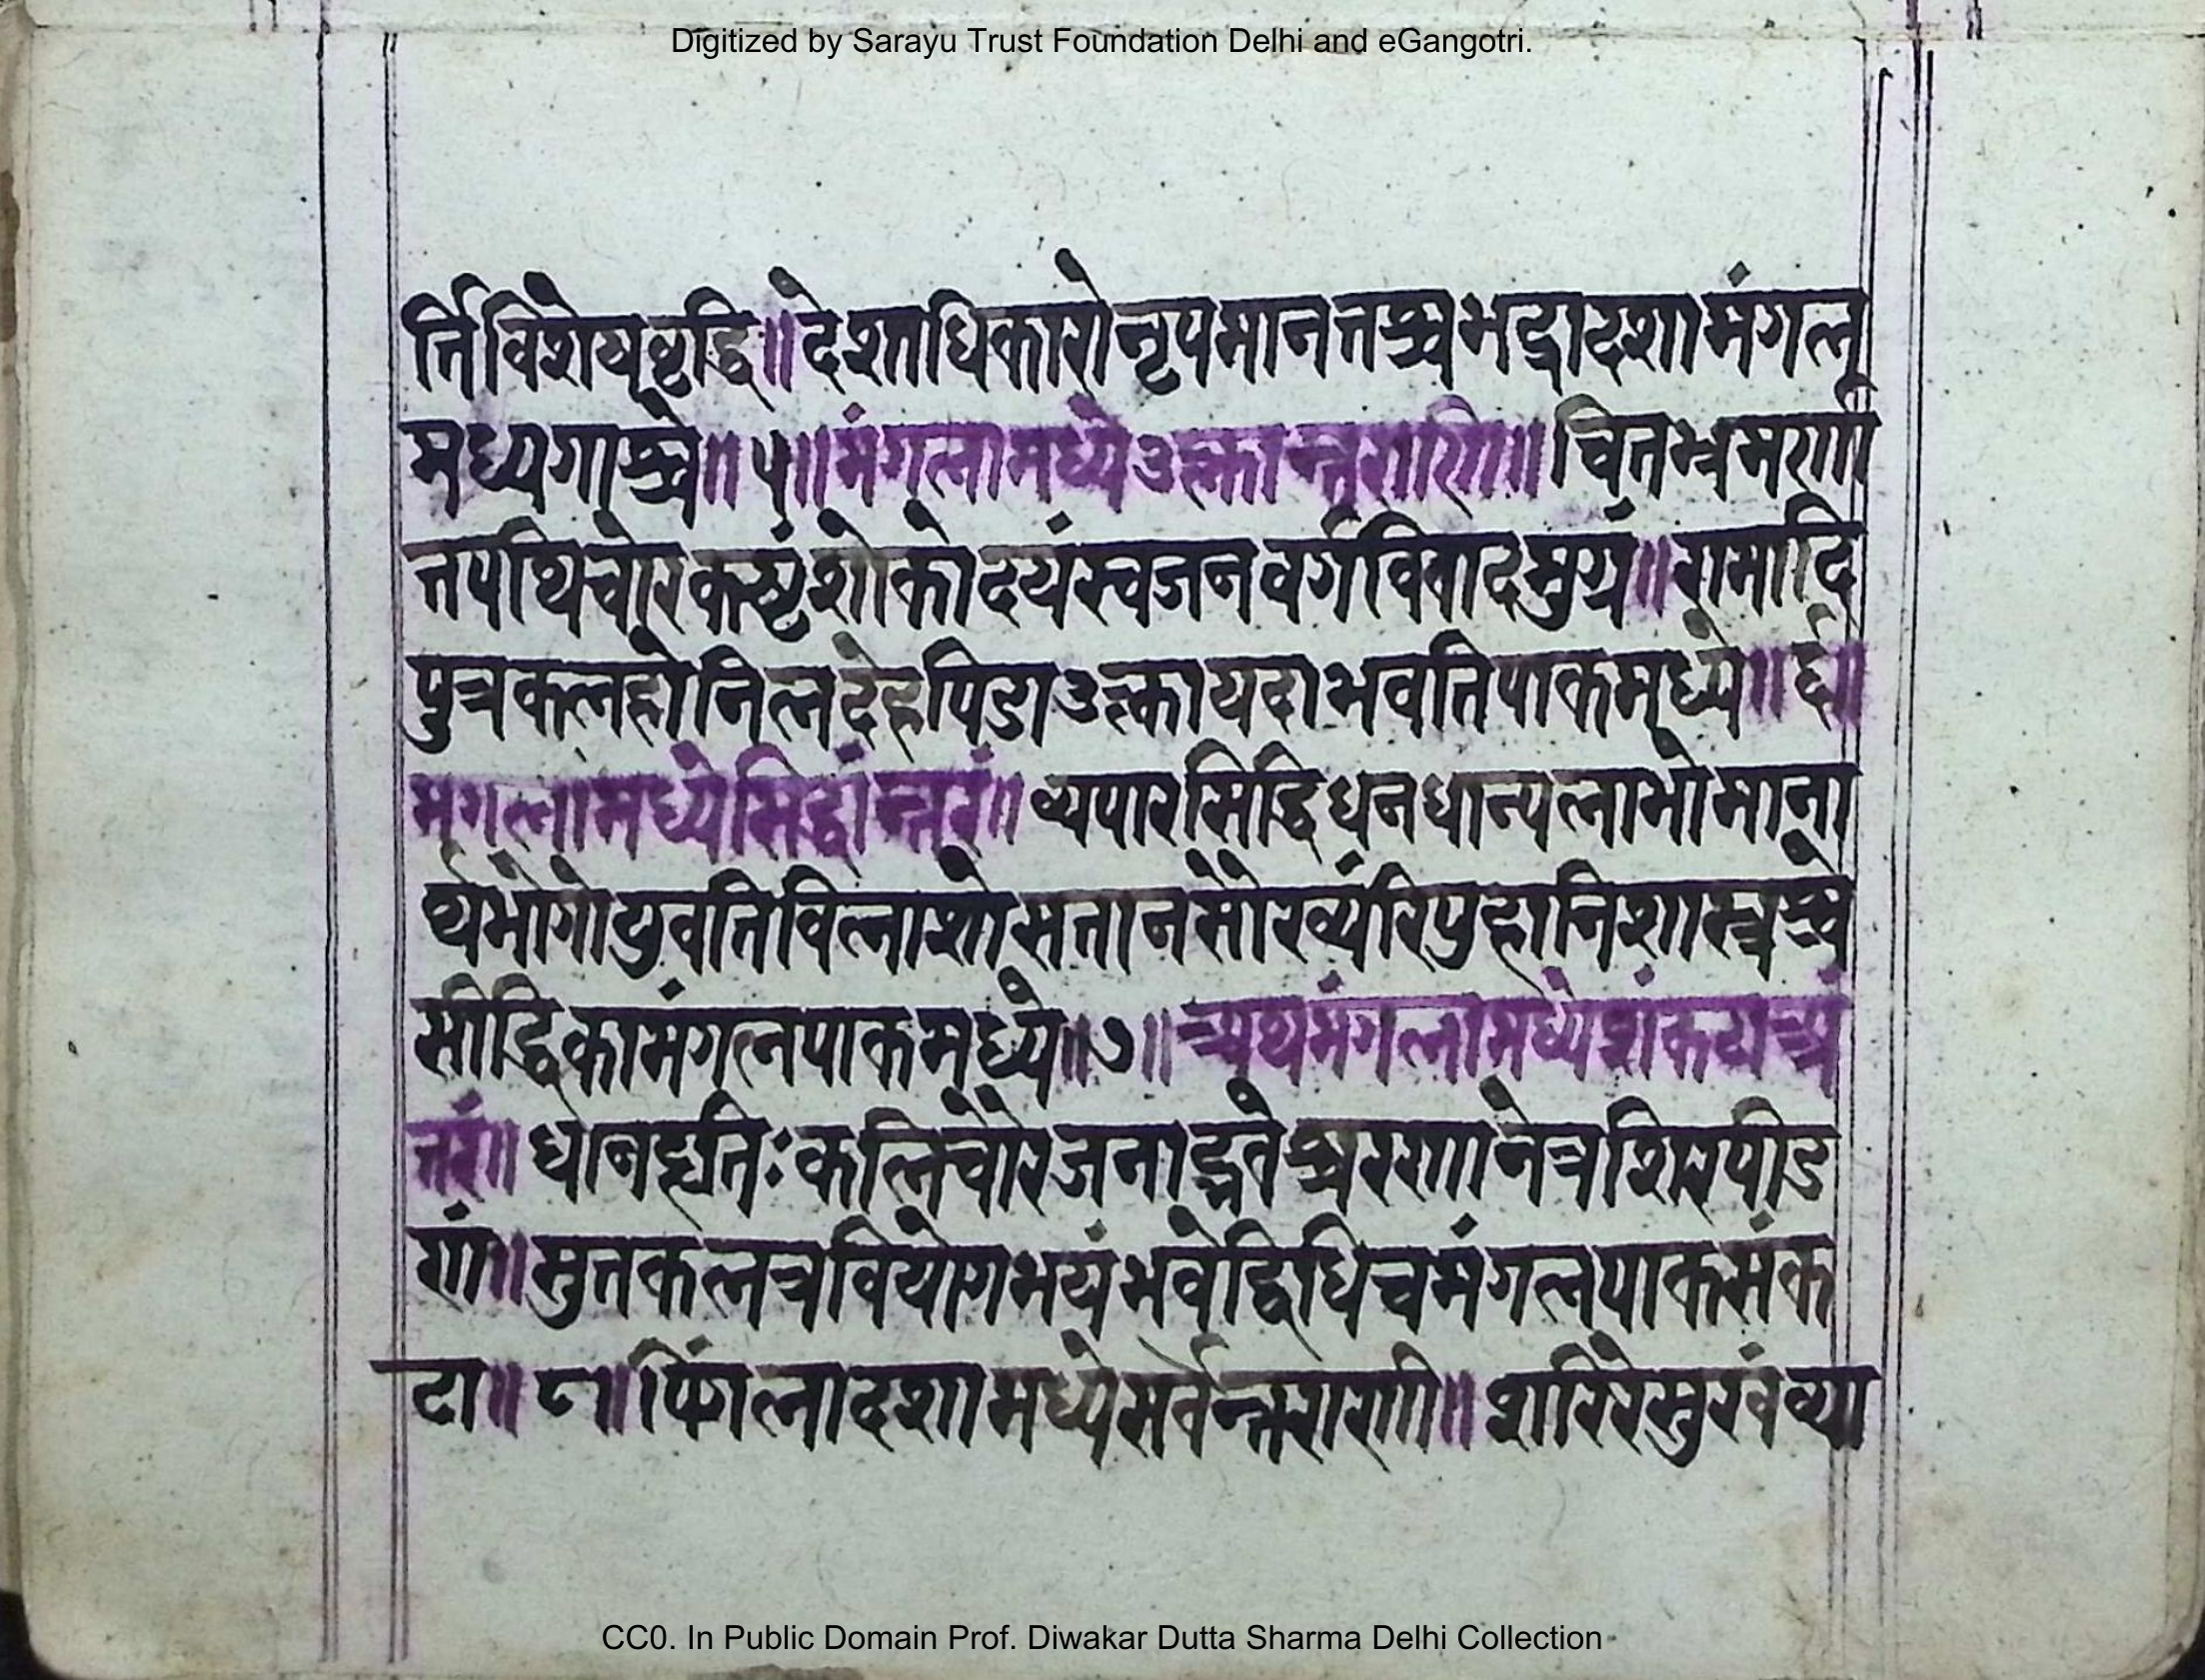 Digitized by Sarayu Trust Foundation Delhi and eGangotri.
र्त्तिविशेयवृद्धि॥देशाधिकारोनृपमानतश्चभद्रादशामंगल
मध्यगाश्चे॥५॥मंगलामध्येउल्कान्तराणि॥चितभ्रमर्णी
तपथिचोरकष्टंशोकोदयंस्वजनवर्गविवादमुग्रं॥रामादि
पुत्रकलहोनिलदेहपिडाउल्कायदाभवतिपाकमध्ये॥६॥
मंगलामध्येसिद्धांन्तरं॥व्यपारसिद्धिधनधान्यलाभोमाना
र्थभोगोयुवतिविलाशोसतानसौख्यंरिपुहानिशास्त्रश्चे
सीद्धिकामंगलपाकमध्ये॥७॥अथमंगलामध्येशंकटाअं
तरं॥धानहृतिःकलिचोरजनाद्गतेश्चरणानेत्रशिरपीड
णं॥सुतकलत्रवियोगभयंभवेद्विधिचमंगलपाकसंक
टा॥८॥पिंगलादशामध्येसर्वेन्तराणी॥शरिरेसुखंव्या
CC0. In Public Domain Prof. Diwakar Dutta Sharma Delhi Collection